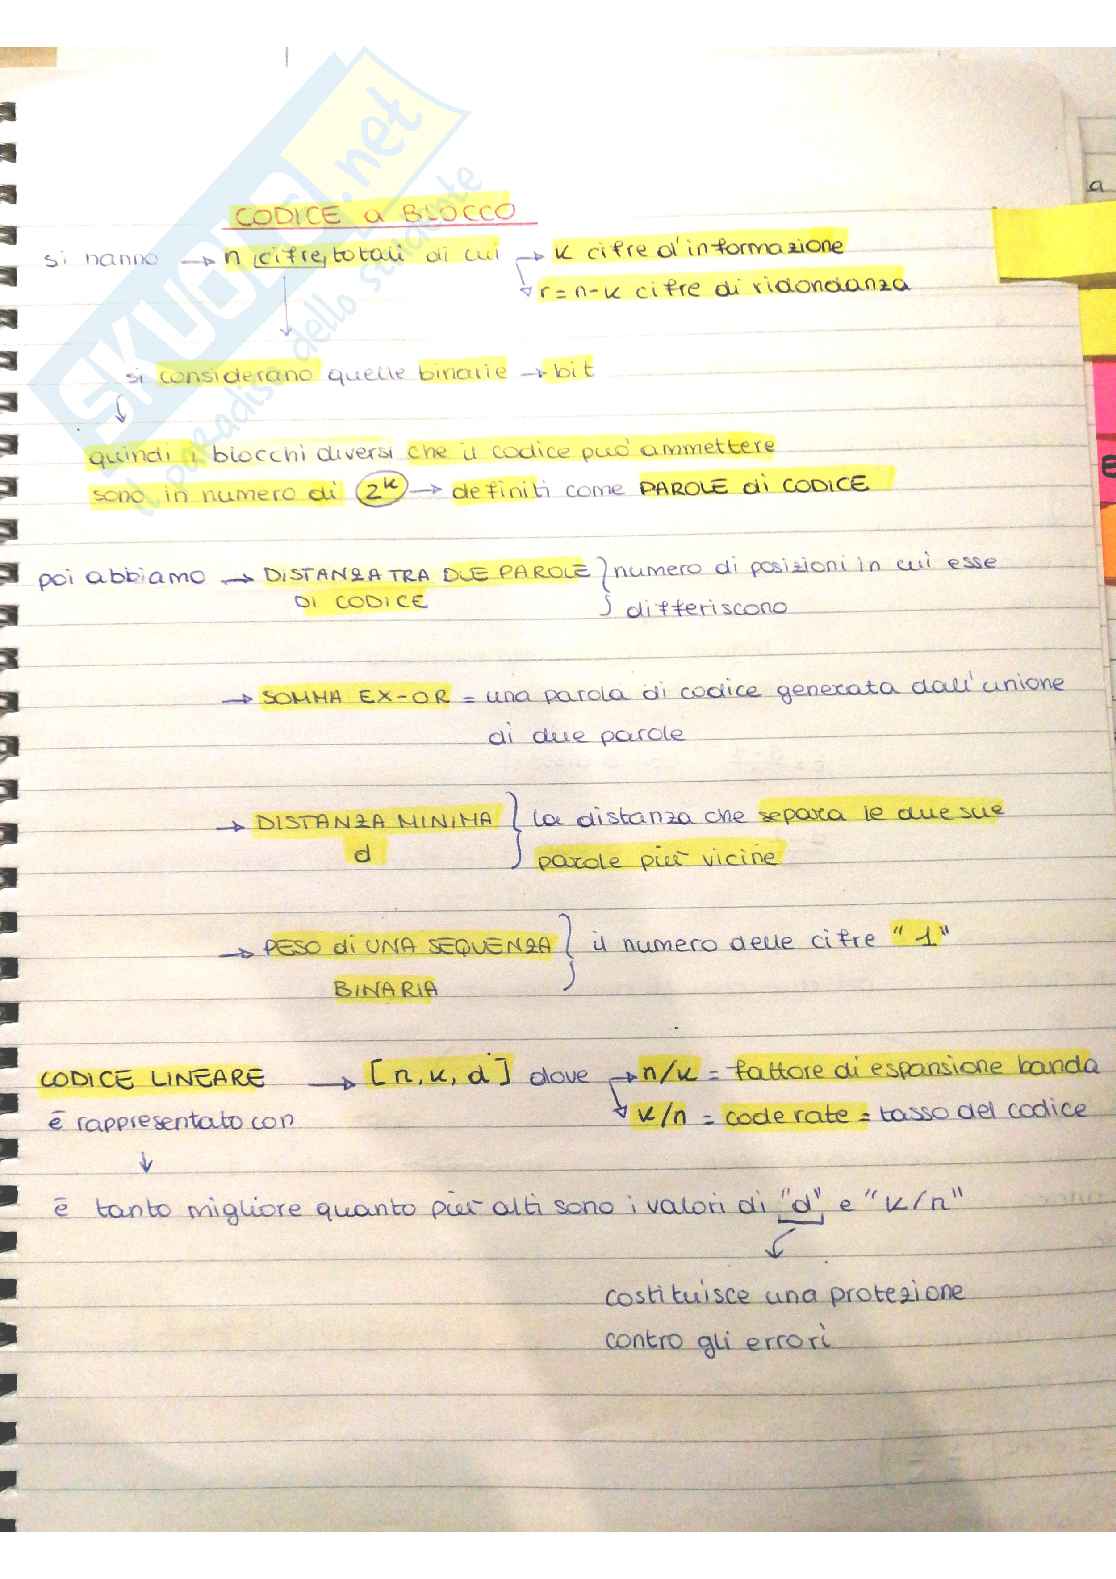 SKUOLA.net
il paradiso dello studente
CODICE a BLOCCO
si hanno → n cifre totali di cui → k cifre d'informazione
r=n-k cifre di ridondanza
a
si considerano quelle binarie → bit
quindi i blocchi diversi che il codice può ammettere
sono in numero di 2^k → definiti come PAROLE di CODICE
E
poi abbiamo → DISTANZA TRA DUE PAROLE } numero di posizioni in cui esse
DI CODICE differiscono
→ SOMMA EX-OR = una parola di codice generata dall'unione
di due parole
→ DISTANZA MINIMA } la distanza che separa le due sue
d parole più vicine
→ PESO di UNA SEQUENZA } il numero delle cifre "1"
BINARIA
CODICE LINEARE → [n, k, d] dove → n/k = fattore di espansione banda
è rappresentato con k/n = code rate = tasso del codice
è tanto migliore quanto più alti sono i valori di "d" e "k/n"
costituisce una protezione
contro gli errori